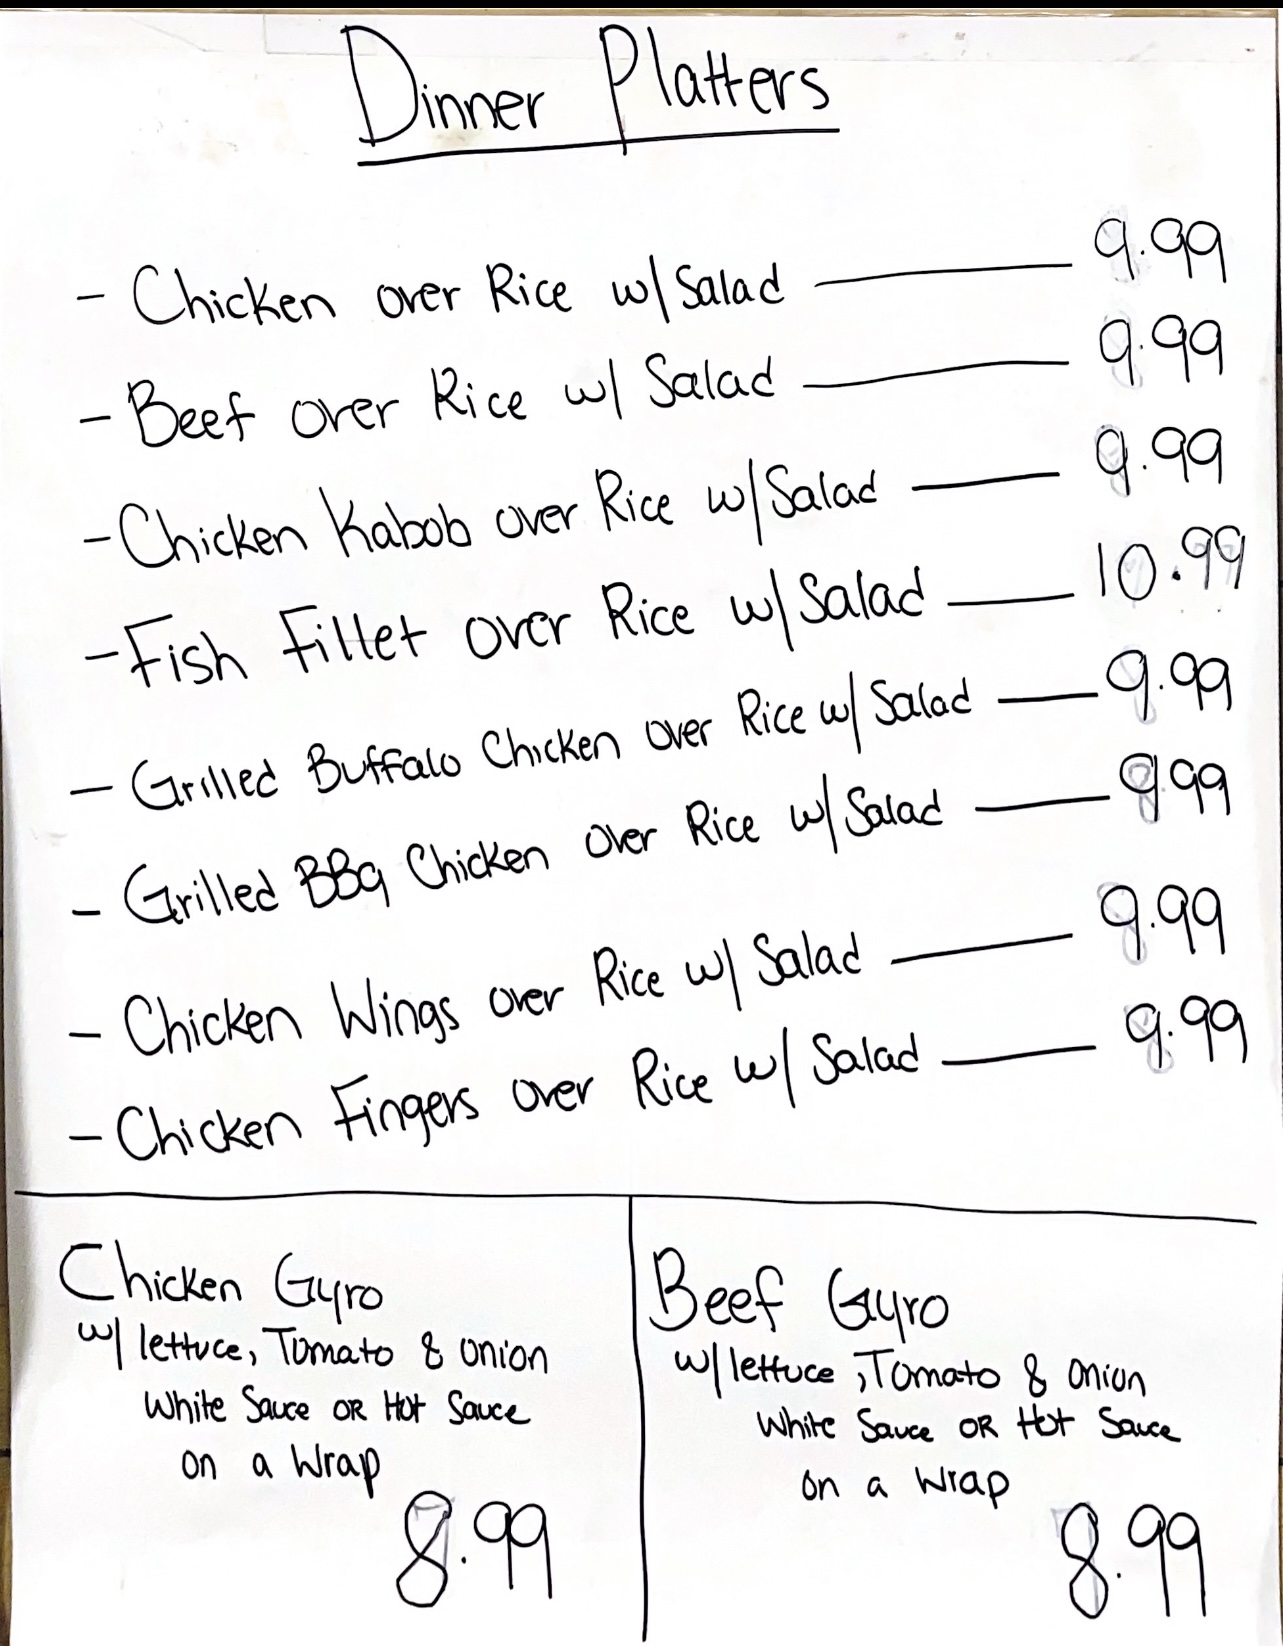 Dinner Platters
- Chicken over Rice w/ Salad — 9.99
- Beef over Rice w/ Salad — 9.99
- Chicken Kabob over Rice w/ Salad — 9.99
- Fish Fillet over Rice w/ Salad — 10.99
- Grilled Buffalo Chicken over Rice w/ Salad — 9.99
- Grilled BBq Chicken over Rice w/ Salad — 9.99
- Chicken Wings over Rice w/ Salad — 9.99
- Chicken Fingers over Rice w/ Salad — 9.99
Chicken Gyro
w/ lettuce, Tomato & onion
White Sauce OR Hot Sauce
on a Wrap
8.99
Beef Gyro
w/ lettuce, Tomato & onion
White Sauce OR Hot Sauce
on a Wrap
8.99